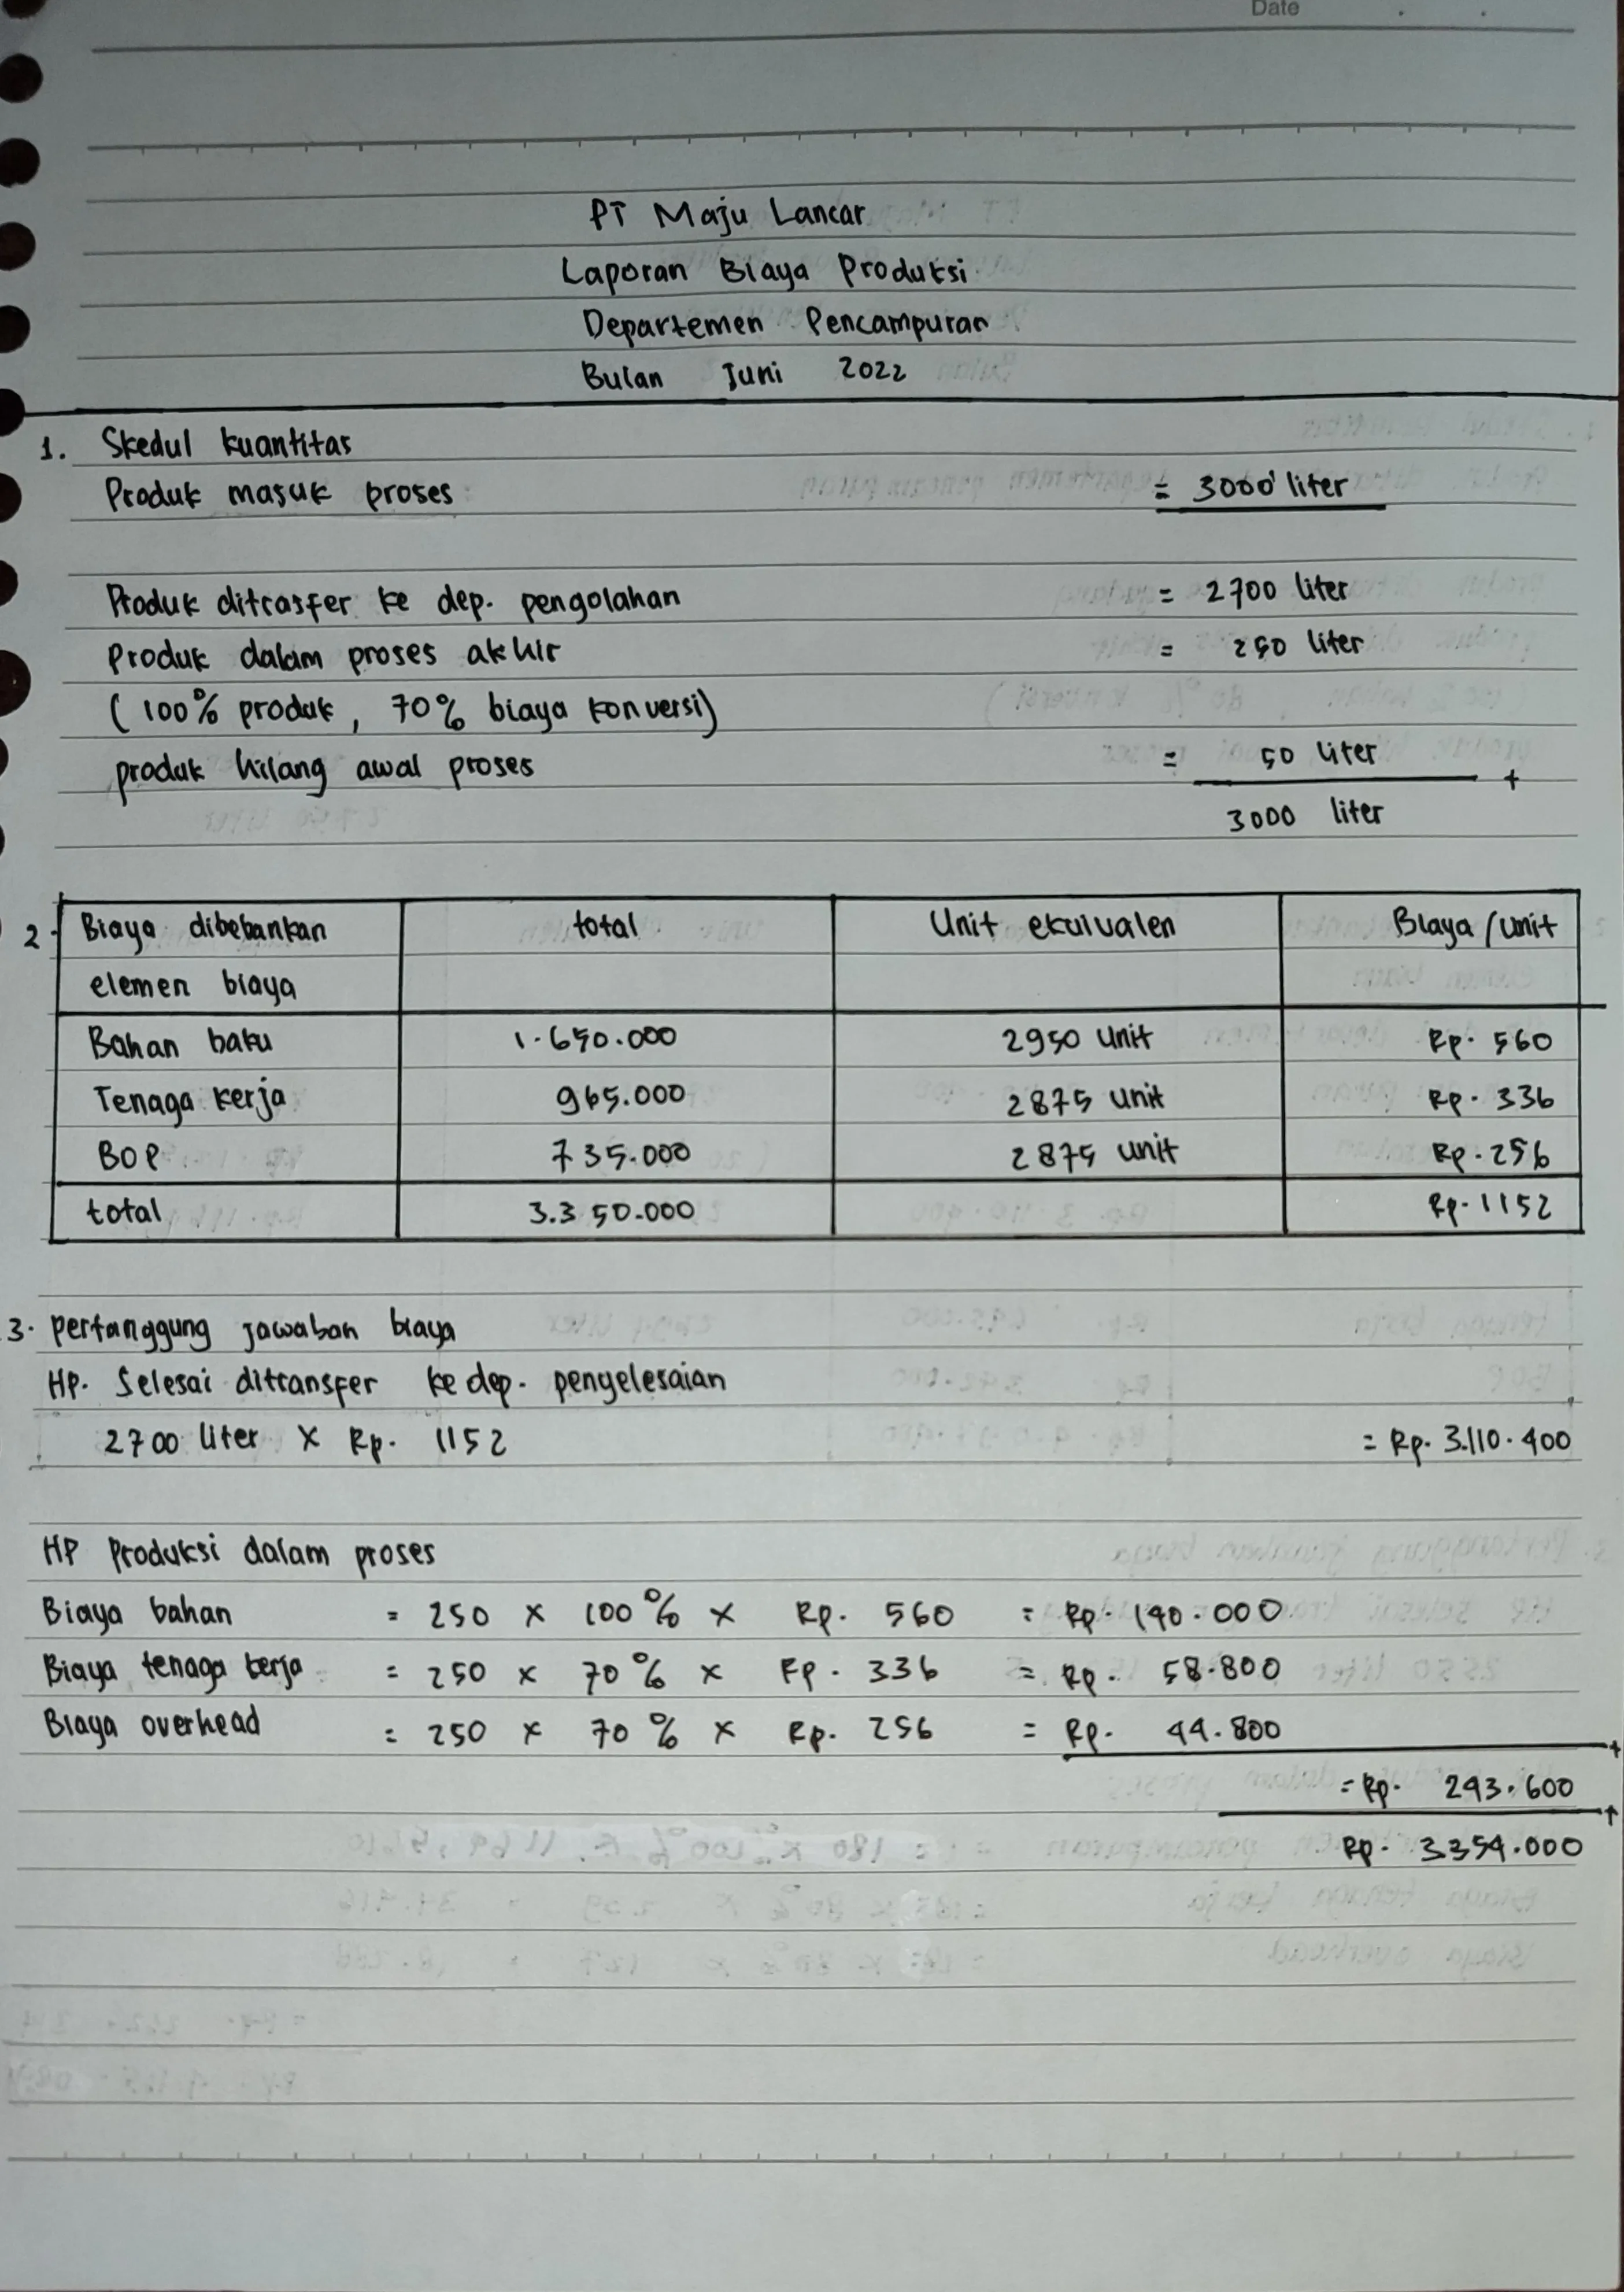 Date
PT Maju Lancar
Laporan Biaya Produksi
Departemen Pencampuran
Bulan Juni 2022
1. Skedul kuantitas
Produk masuk proses = 3000 liter
Produk ditrasfer ke dep. pengolahan = 2700 liter
Produk dalam proses akhir = 250 liter
(100% produk, 70% biaya konversi)
produk hilang awal proses = 50 liter +
3000 liter
2. Biaya dibebankan total Unit ekuivalen Biaya/unit
elemen biaya
Bahan baku 1.650.000 2950 unit Rp. 560
Tenaga kerja 965.000 2875 unit Rp. 336
BOP 735.000 2875 unit Rp. 256
total 3.350.000 Rp. 1152
3. pertanggung jawaban biaya
HP. Selesai ditransfer ke dep. penyelesaian
2700 liter x Rp. 1152 = Rp. 3.110.400
HP Produksi dalam proses
Biaya bahan = 250 x 100% x Rp. 560 = Rp. 140.000
Biaya tenaga kerja = 250 x 70% x Rp. 336 = Rp. 58.800
Biaya overhead = 250 x 70% x Rp. 256 = Rp. 44.800 +
= Rp. 243.600 +
Rp. 3354.000